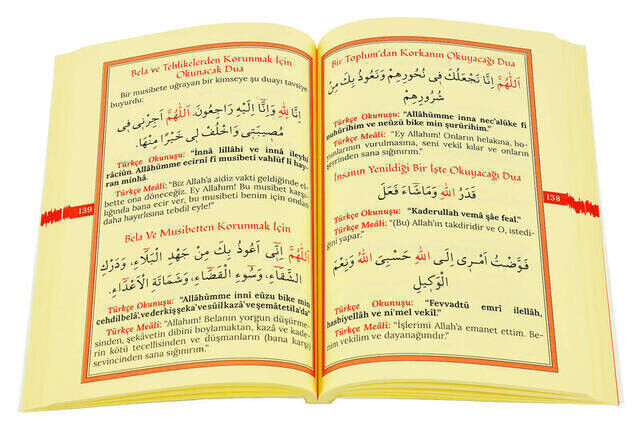 Bela ve Tehlikelerden Korunmak İçin
Okunacak Dua
Bir musibete uğrayan bir kimseye şu duayı tavsiye
buyurdu:
اِنَّا لِلّٰهِ وَاِنَّٓا اِلَيْهِ رَاجِعُونَ. اَللّٰهُمَّ اٰجِرْن۪ي ف۪ي
مُص۪يبَت۪ي وَاخْلُفْ ل۪ي خَيْرًا مِنْهَا.
Türkçe Okunuşu: "İnnâ lillâhi ve innâ ileyhi
râciûn. Allâhümme ecirnî fî musîbetî vahlüf lî hay-
ran minhâ."
Türkçe Meâli: "Biz Allah'a aidiz vakti geldiğinde el-
bette ona döneceğiz. Ey Allahım! Bu musibet karşı-
lığında bana ecir ver, bu musibeti benim için ondan
daha hayırlısına tebdil eyle!"
Bela Ve Musibetten Korunmak İçin
اَللّٰهُمَّ اِنّ۪ٓي اَعُوذُ بِكَ مِنْ جَهْدِ الْبَلَٓاءِ، وَدَرْكِ
الشَّقَٓاءِ، وَسُٓوءِ الْقَضَٓاءِ، وَشَمَاتَةِ الْاَعْدَٓاءِ.
Türkçe Okunuşu: "Allâhümme inni eûzu bike min
cehdilbelâ', ve derkişşeka' ve sûilkazâ' ve şemâtetila'da"
Türkçe Meâli: "Allahım! Belanın yorgun düşürme-
sinden, şekâvetin dibini boylamaktan, kazâ ve kade-
rin kötü tecellisinden ve düşmanların (bana karşı)
sevincinden sana sığınırım."
139
Bir Toplum'dan Korkanın Okuyacağı Dua
اَللّٰهُمَّ اِنَّا نَجْعَلُكَ ف۪ي نُحُورِهِمْ وَنَعُوذُ بِكَ مِنْ
شُرُورِهِمْ
Türkçe Okunuşu: "Allâhümme inna nec'alüke fî
nuhûrihim ve neûzü bike min şurûrihim."
Türkçe Meâli: "Ey Allahım! Onların helakına, bo-
yunlarının vurulmasına, seni vekil kılar ve onların
şerrinden sana sığınırım."
İnsanın Yenildiği Bir İşte Okuyacağı Dua
قَدَرُ اللّٰهِ وَمَاشَٓاءَ فَعَلَ
Türkçe Okunuşu: "Kaderullah vemâ şâe feal."
Türkçe Meâli: "(Bu) Allah'ın takdiridir ve O, istedi-
ğini yapar."
فَوَّضْتُ اَمْر۪ٓي اِلَى اللّٰهِ حَسْبِيَ اللّٰهُ وَنِعْمَ
الْوَك۪يلُ
Türkçe Okunuşu: "Fevvadtü emrî ilellâh,
hasbiyellâh ve ni'mel vekîl."
Türkçe Meâli: "İşlerimi Allah'a emanet ettim. Be-
nim vekilim ve dayanağımdır."
138